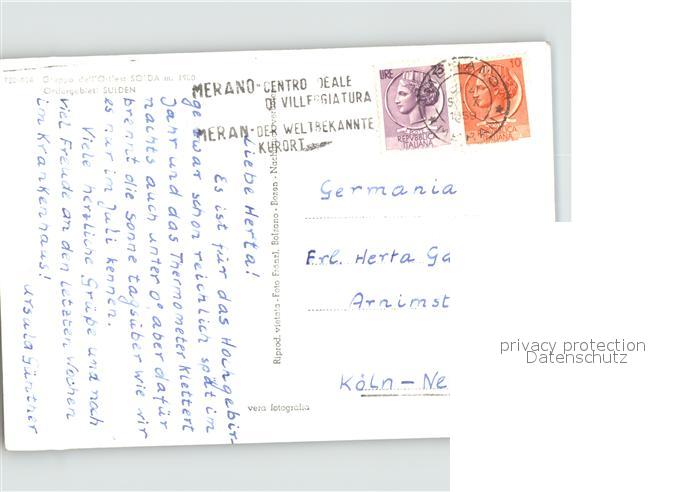 720-614 Gruppo dell'Ortles SOLDA m. 1900
Ortlergebiet SULDEN
MERANO-CENTRO IDEALE
DI VILLEGGIATURA
MERAN-DER WELTBEKANNTE
KURORT
LIRE 25
REPVBBLICA
ITALIANA
10
REPVBBLICA
ITALIANA
MERANO
1959
Liebe Herta!
Es ist für das Hochgebir-
ge zwar schon reichlich spät im
Jahr und das Thermometer klettert
nachts auch unter 0°, aber dafür
brennt die Sonne tagsüber wie wir
es nur im Juli kennen.
Viele herzliche Grüße und noch
viel Freude an den letzten Wochen
im Krankenhaus!
Ursula Günther
Riprod. vietata - Foto Fränzl, Bolzano - Bozen
vera fotografia
Germania
Frl. Herta Ga
Arnimst
Köln - Ne
privacy protection
Datenschutz